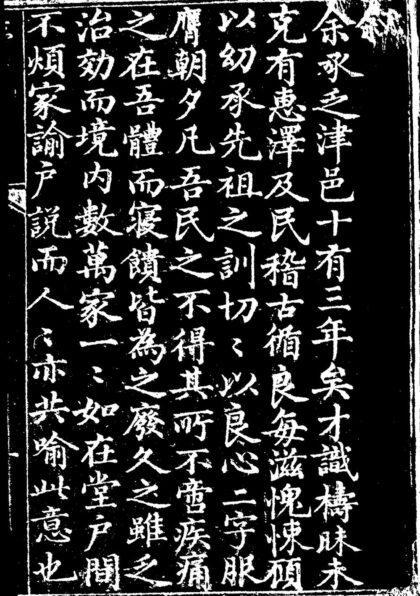 叙
余承乏津邑十有三年矣才識檮昧未
克有惠澤及民稽古循良每滋愧悚顧
以幼承先祖之訓切〻以良心二字服
膺朝夕凡吾民之不得其所不啻疾痛
之在吾體而寢饋皆為之廢久之雖乏
治効而境内數萬家一〻如在堂戶間
不煩家諭戶說而人〻亦共喻此意也